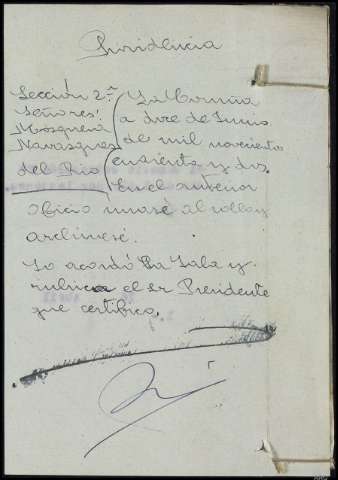 Providencia
Sección 2ª
Señores:
Mosquera
Navasqües
del Rio
La Coruña
a doce de Junio
de mil noveciento
cincuenta y dos.
En el anterior
oficio unase al rollo y
archivese.
Lo acordó la Sala y
rubrica el sr Presidente
que certifico.